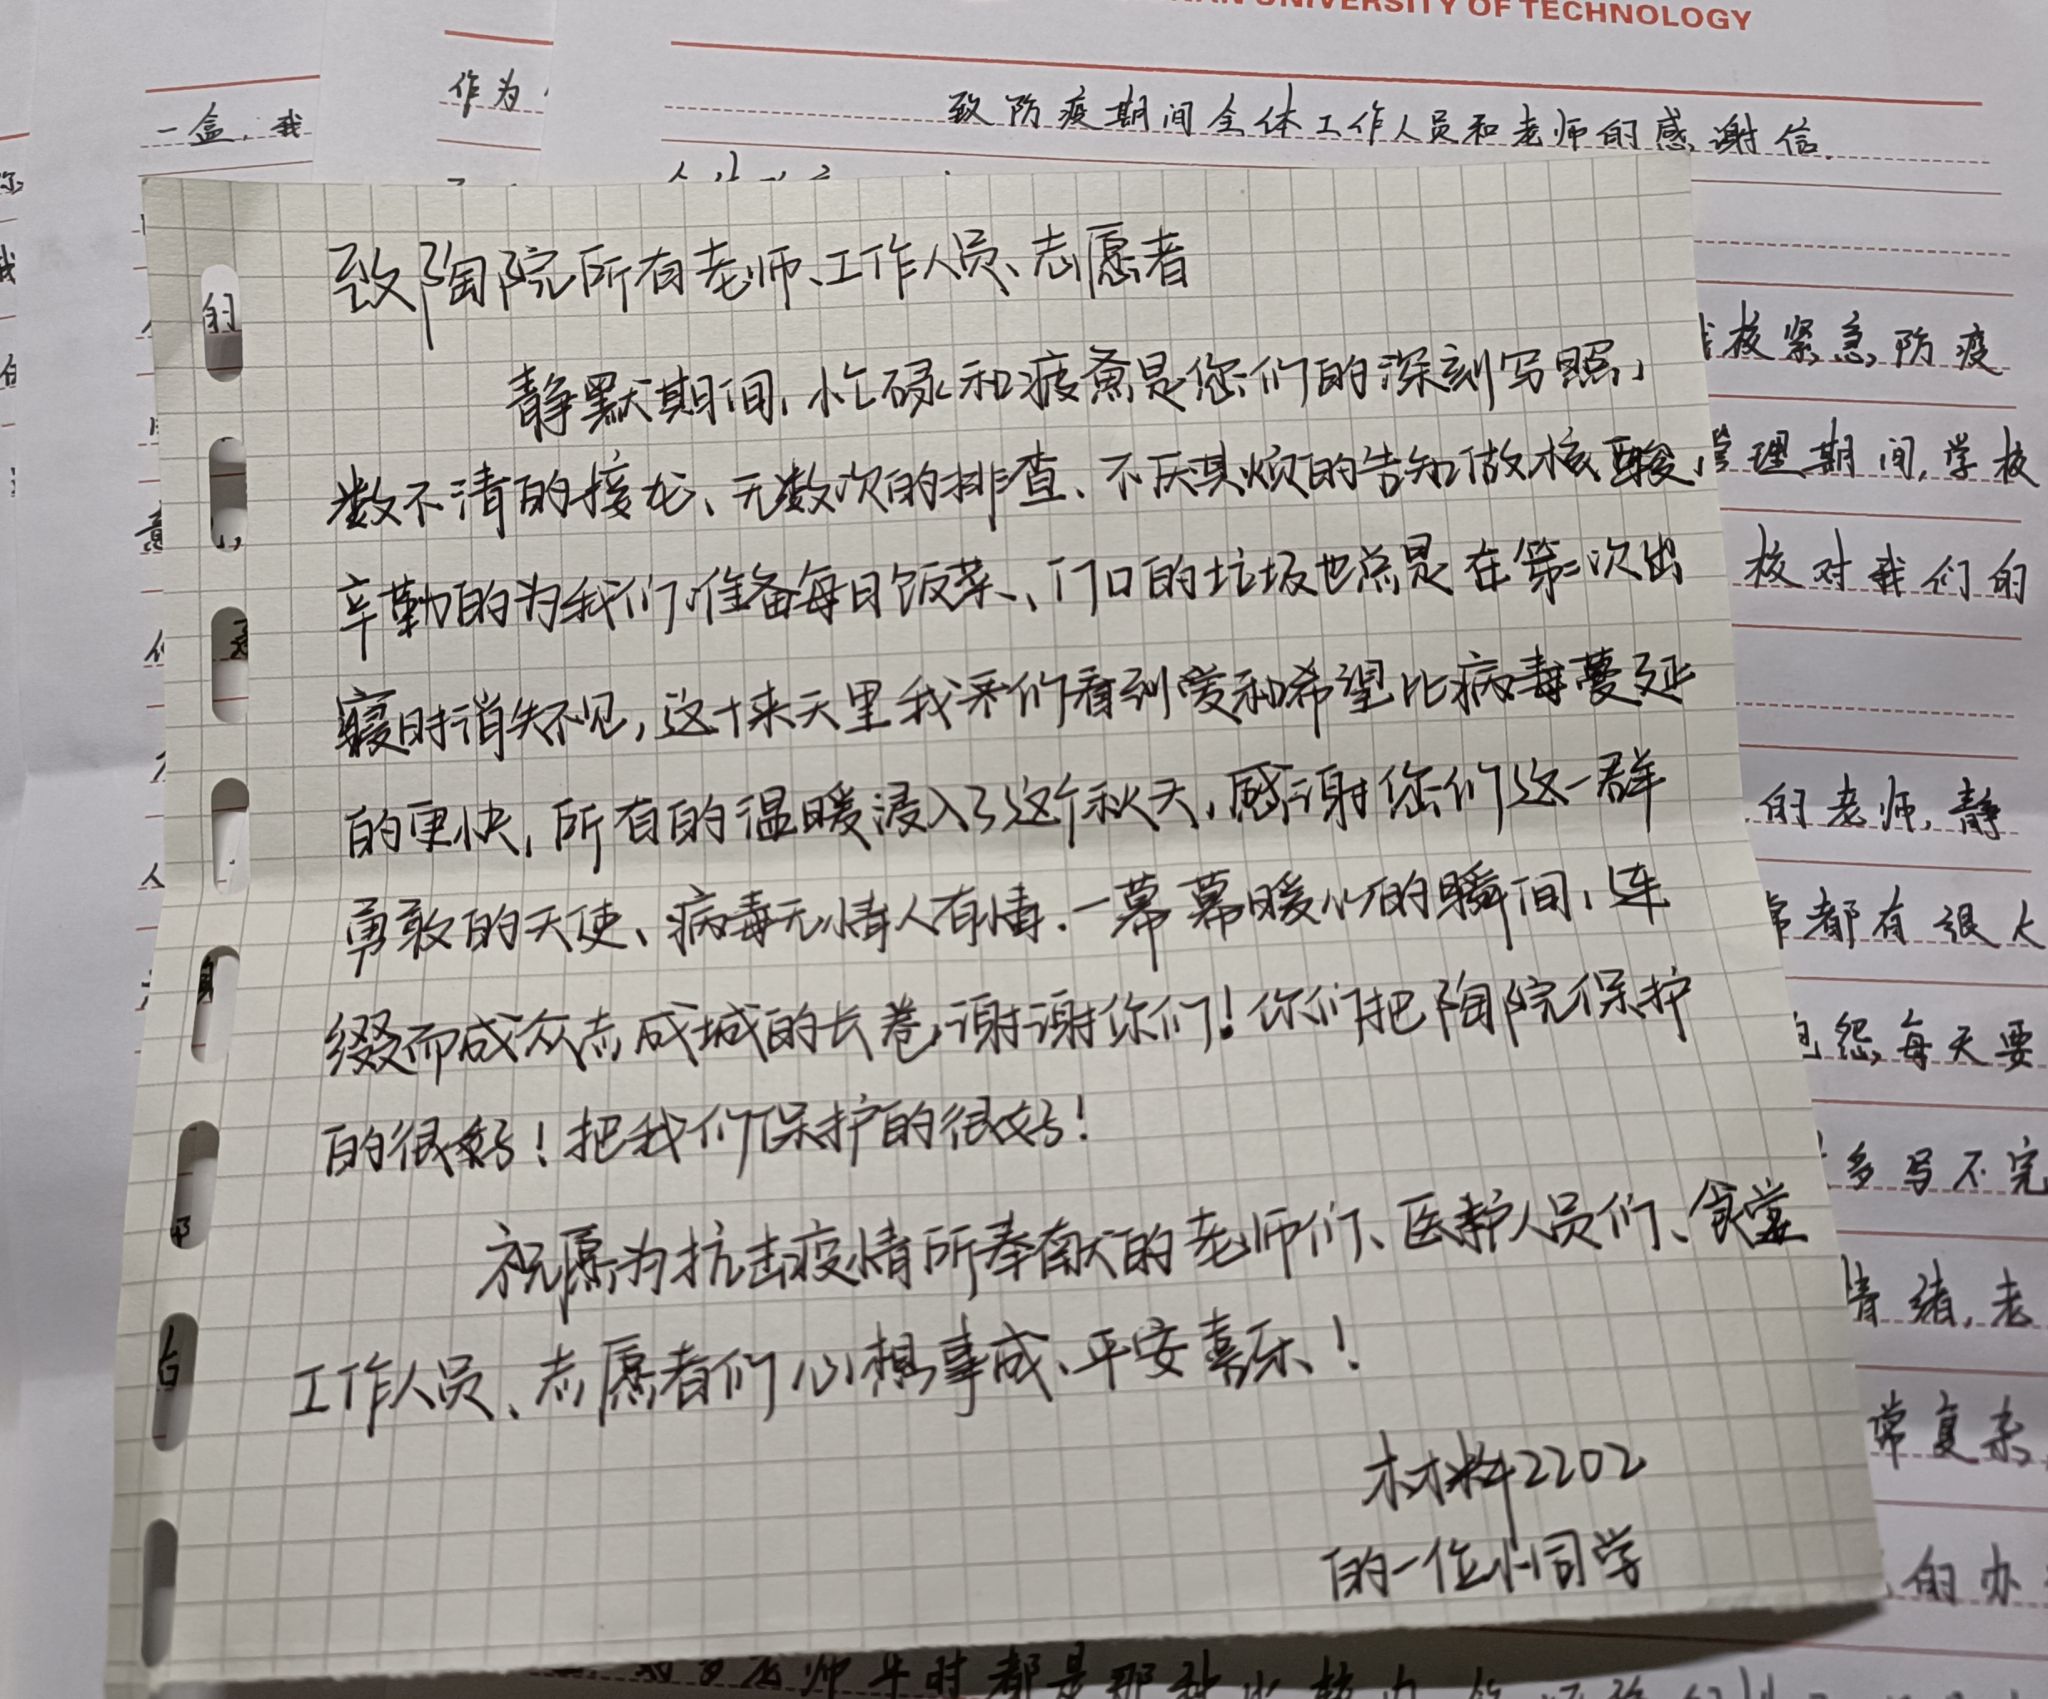 UNIVERSITY OF TECHNOLOGY
致防疫期间全体工作人员和老师的感谢信.
作为
一盒,我
致陶院所有老师、工作人员、志愿者
静默期间,忙碌和疲惫是您们的深刻写照,
数不清的接龙、无数次的排查、不厌其烦的告知做核酸,
辛勤的为我们准备每日饭菜、门口的垃圾也总是在第二次出
寝时消失不见,这十来天里我们看到爱和希望比病毒蔓延
的更快,所有的温暖浸入了这个秋天,感谢您们这一群
勇敢的天使、病毒无情人有情.一幕幕暖心的瞬间,连
缀而成众志成城的长卷,谢谢你们!你们把陶院保护
的很好!把我们保护的很好!
祝愿为抗击疫情所奉献的老师们、医护人员们、食堂
工作人员、志愿者们心想事成、平安喜乐!
材料2202
的一位小同学
校紧急防疫
管理期间,学校
核对我们的
的老师,静
都有很大
怨,每天要
多写不完
情绪,老
常复杂,
的办